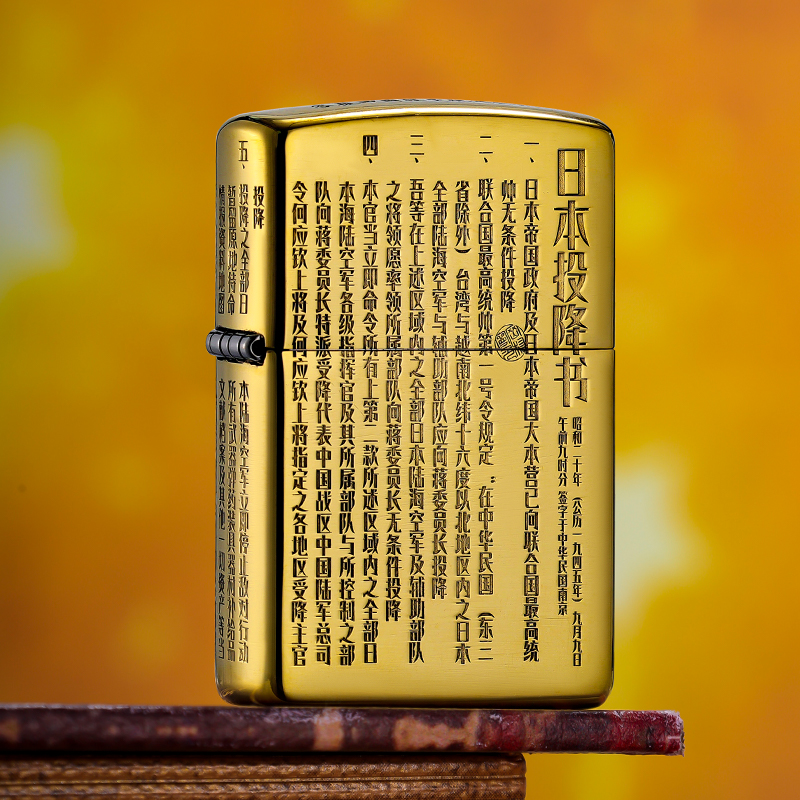 日本投降书
昭和二十年（公历一九四五年）九月九日
午前九时分 签字于中华民国南京
一、日本帝国政府及日本帝国大本营已向联合国最高统
帅无条件投降
二、联合国最高统帅第一号令规定：在中华民国（东二
省除外）台湾与越南北纬十六度以北地区内之日本
全部陆海空军与辅助部队应向蒋委员长投降
三、吾等在上述区域内之全部日本陆海空军及辅助部队
之将领愿率领所属部队向蒋委员长无条件投降
四、本官当立即命令所有上第二款所述区域内之全部日
本海陆空军各级指挥官及其所属部队与所控制之部
队向蒋委员长特派受降代表中国战区中国陆军总司
令何应钦上将及何应钦上将指定之各地区受降主官
投降
五、投降之全部日本陆海空军立即停止敌对行动
暂留原地待命所有武器弹药装具器材补给品
情报资料地图文献档案及其他一切资产等当